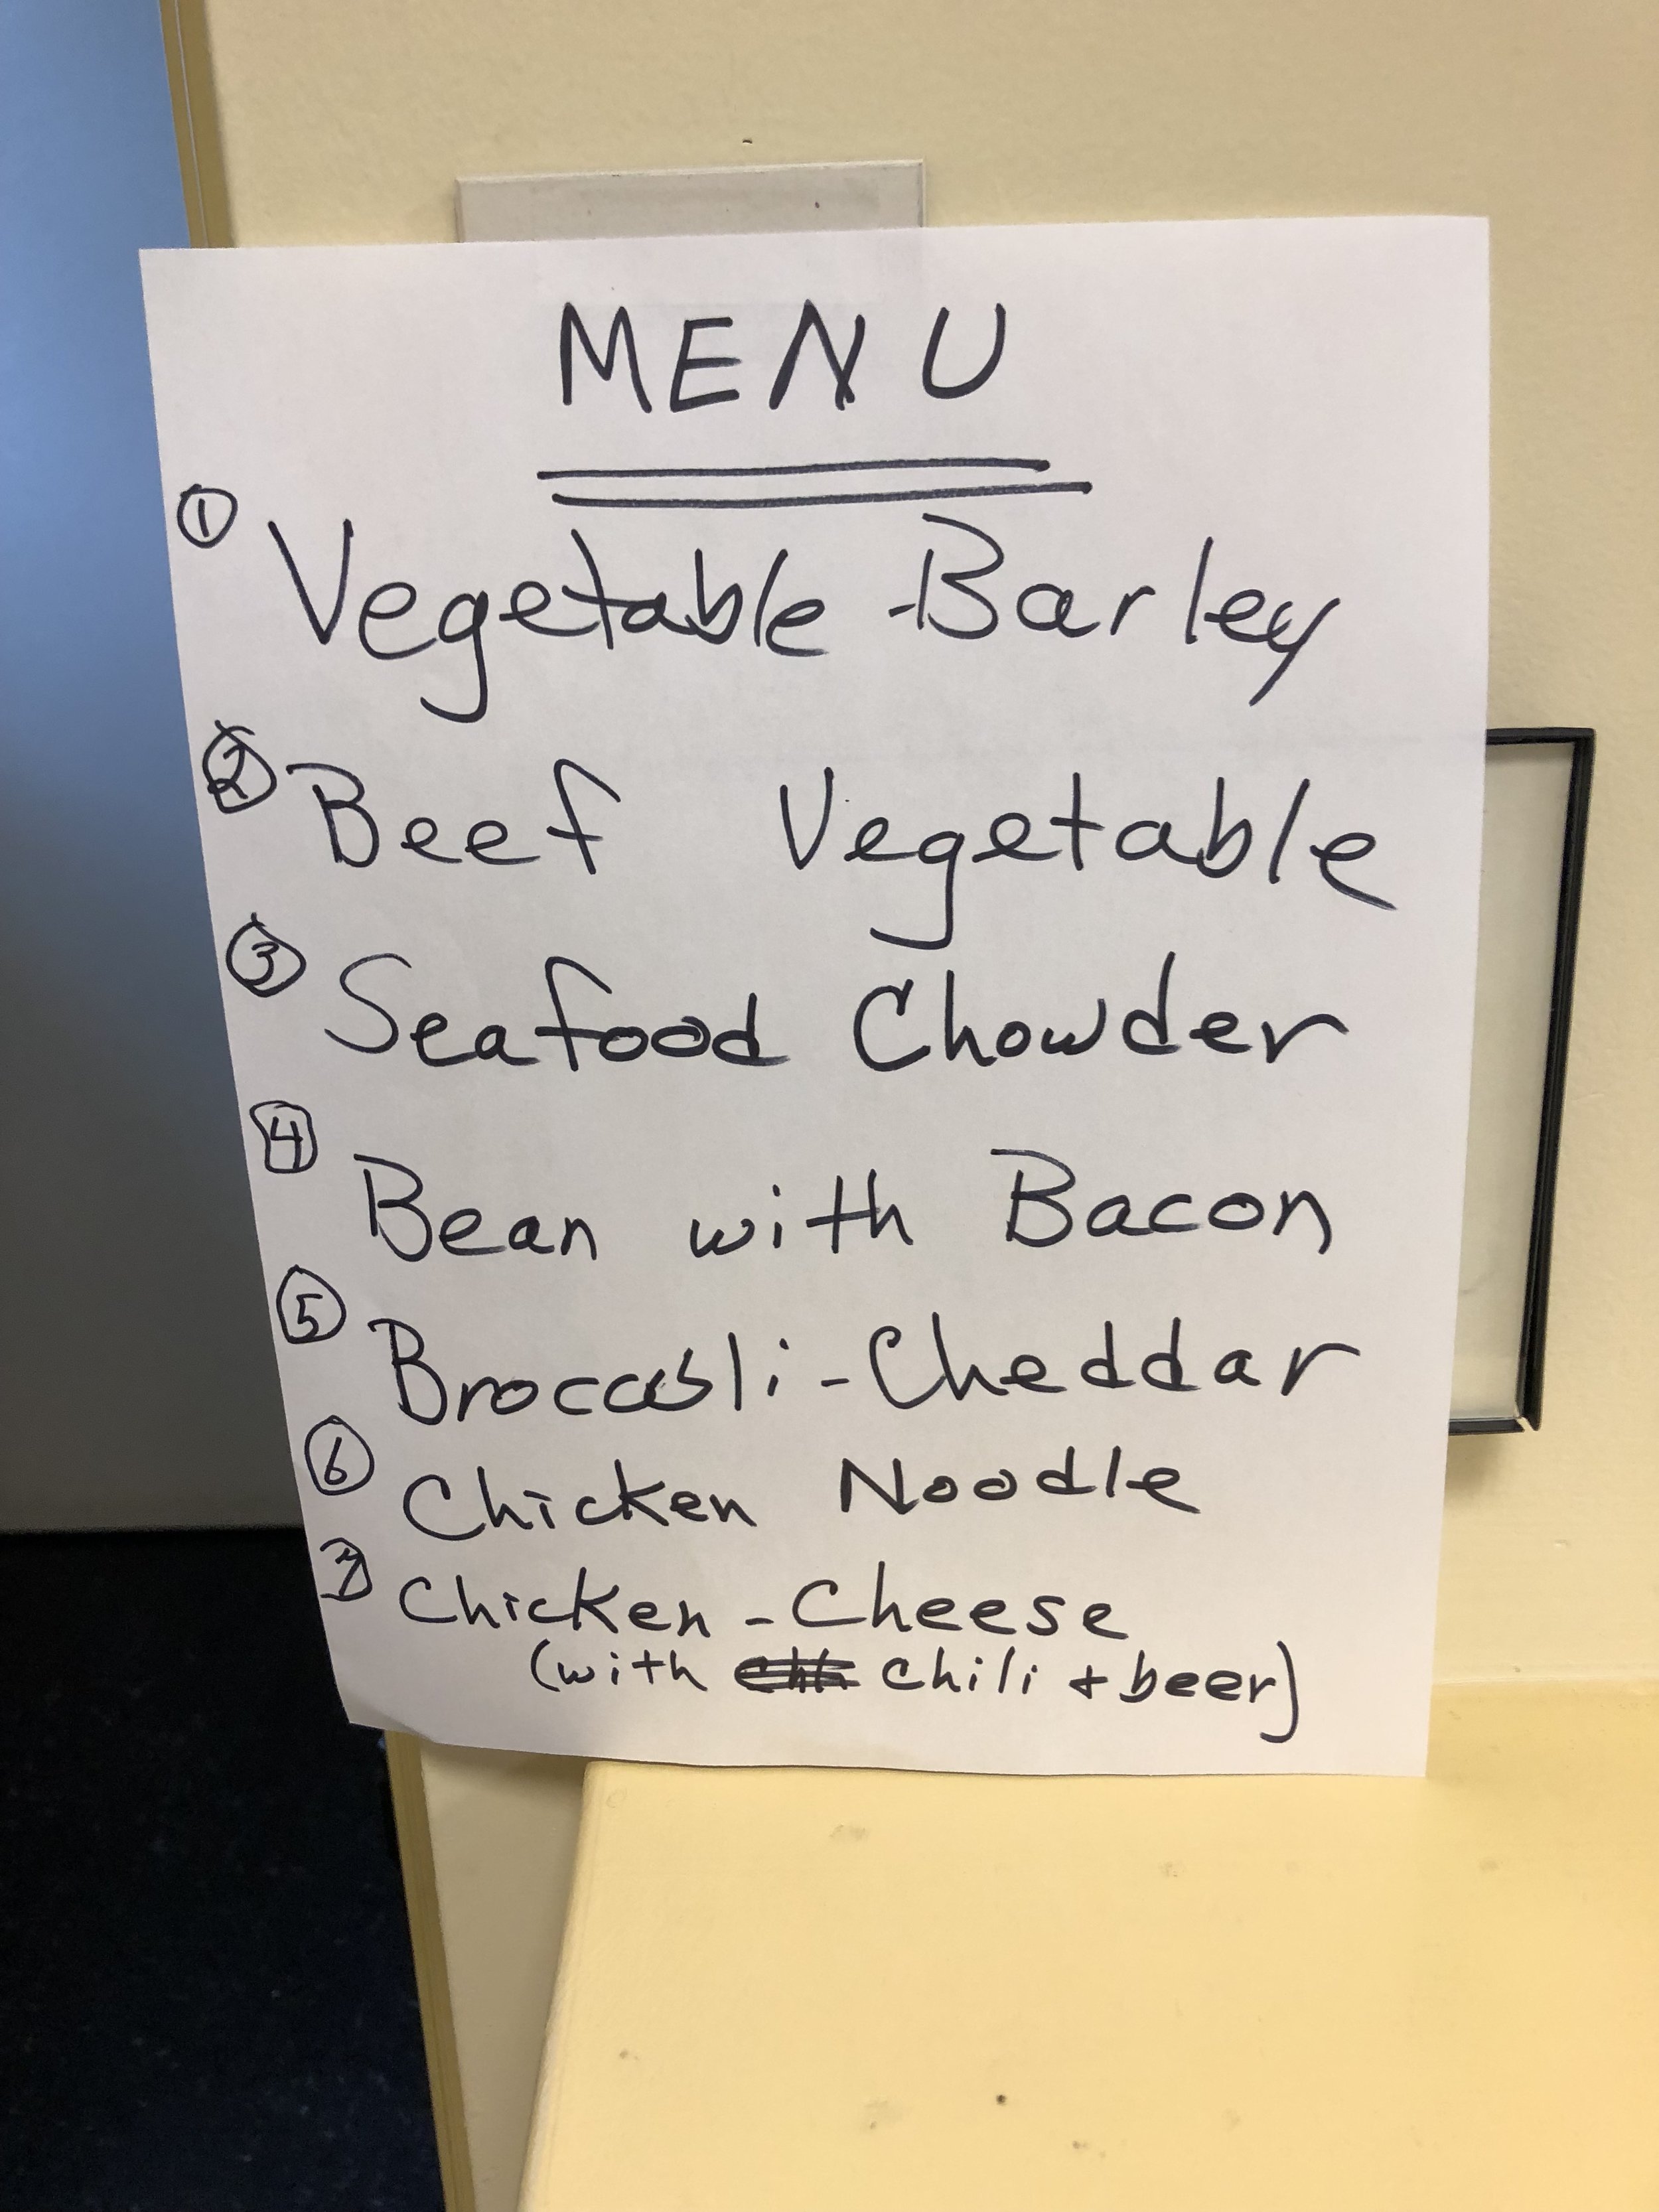 MENU
① Vegetable-Barley
② Beef Vegetable
③ Seafood Chowder
4 Bean with Bacon
⑤ Broccoli-Cheddar
⑥ Chicken Noodle
7 Chicken-Cheese
(with chili + beer)